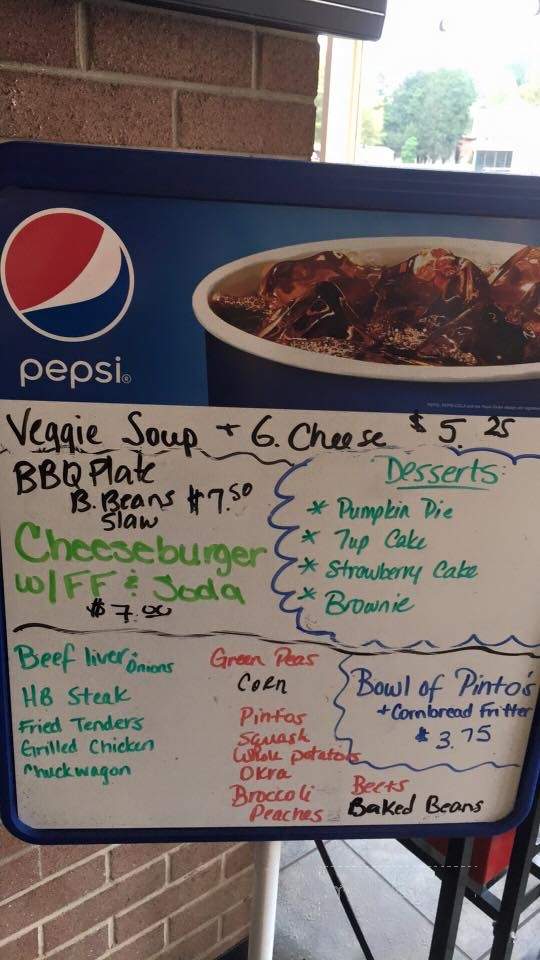 pepsi®
Veggie Soup + G. Cheese $5.25
BBQ Plate
B. Beans $7.50
Slaw
Cheeseburger
w/FF & Soda
$7.00
Desserts:
* Pumpkin Pie
* 7up Cake
* Strawberry Cake
* Brownie
Beef liver & Onions
HB Steak
Fried Tenders
Grilled Chicken
Chuckwagon
Green Peas
Corn
Pintos
Squash
Whole potatoes
Okra
Broccoli
Peaches
Bowl of Pinto's
+ Cornbread Fritter
$3.75
Beets
Baked Beans